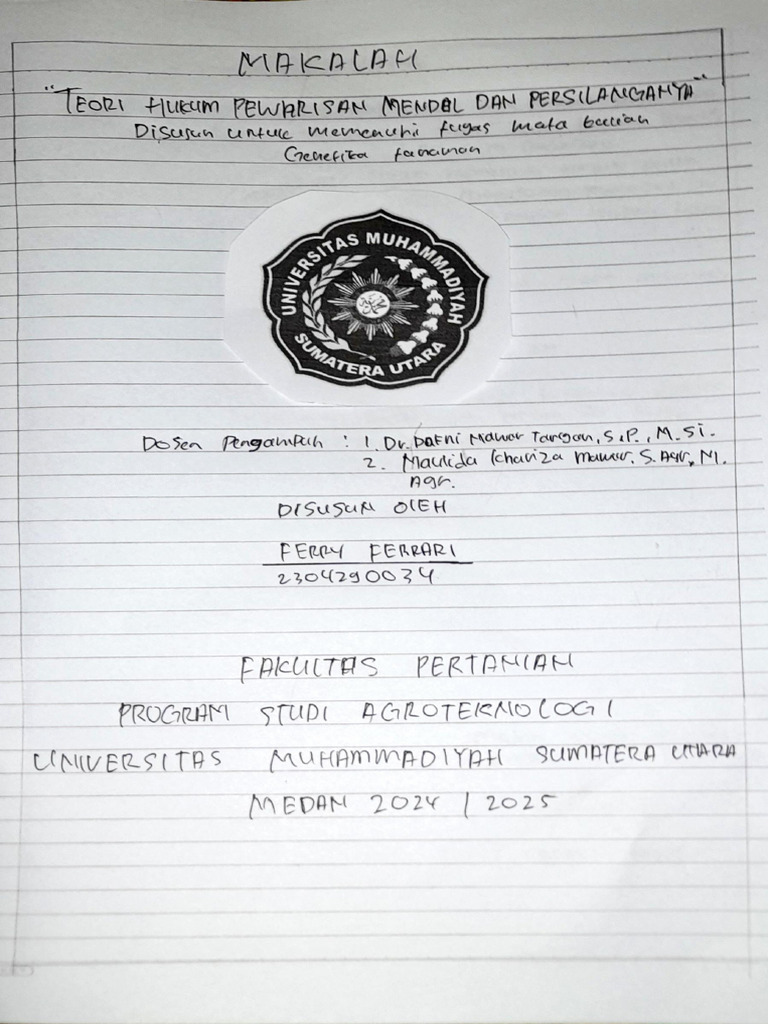 MAKALAH
"TEORI HUKUM PEWARISAN MENDEL DAN PERSILANGANYA"
Disusun untuk memenuhi tugas mata kuliah
Genetika tanaman
UNIVERSITAS MUHAMMADIYAH
SUMATERA UTARA
Dosen Pengampuh : 1. Dr. Dafni Mawar Tarigan, S.P., M.Si.
2. Maulida Khariza S. Agr, M.
Agr.
DISUSUN OLEH
FERRY FERRARI
2304290034
FAKULTAS PERTANIAN
PROGRAM STUDI AGROTEKNOLOGI
UNIVERSITAS MUHAMMADIYAH SUMATERA UTARA
MEDAN 2024 / 2025